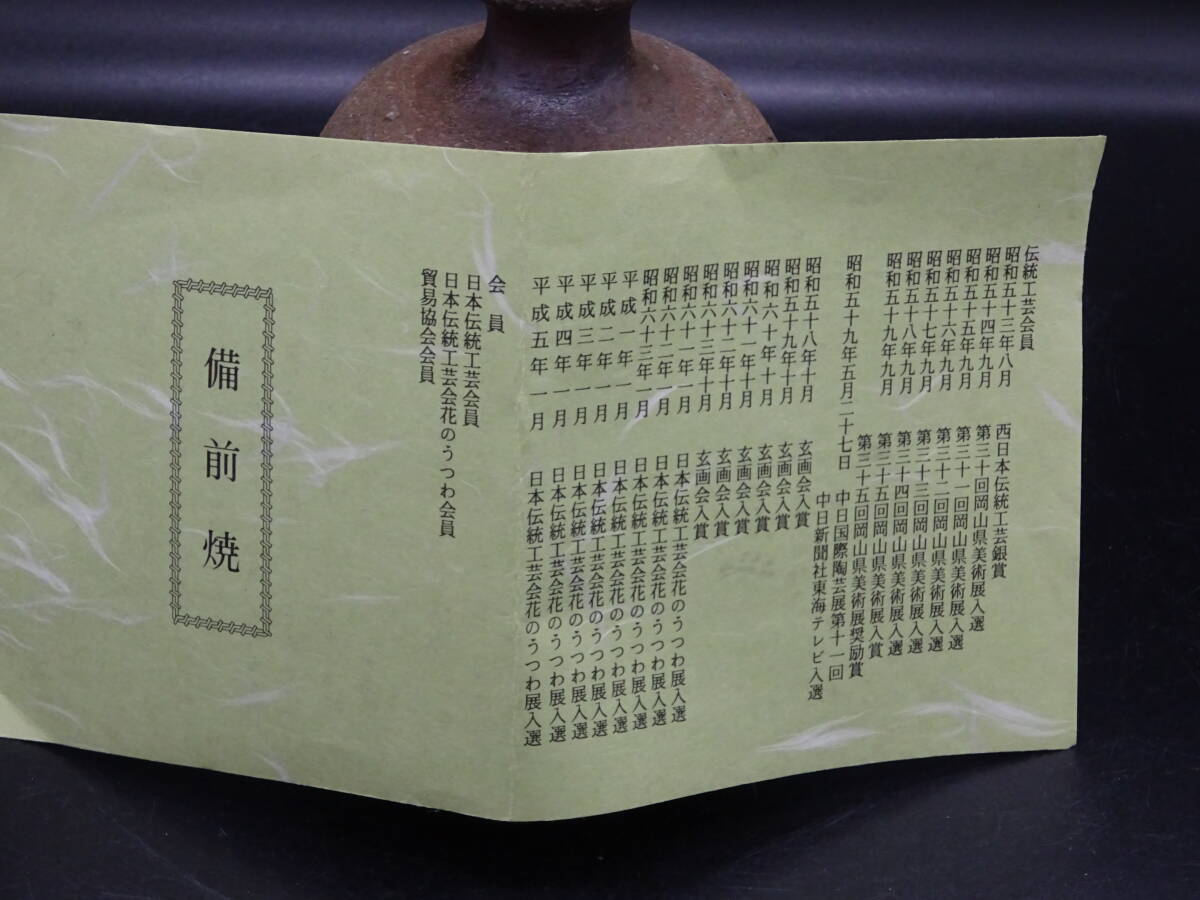 伝統工芸会員
昭和五十三年八月 西日本伝統工芸銀賞
昭和五十四年九月 第三十回岡山県美術展入選
昭和五十五年九月 第三十一回岡山県美術展入選
昭和五十六年九月 第三十二回岡山県美術展入選
昭和五十七年九月 第三十三回岡山県美術展入選
昭和五十八年九月 第三十四回岡山県美術展入選
昭和五十九年九月 第三十五回岡山県美術展入賞
第三十五回岡山県美術展奨励賞
昭和五十九年五月二十七日 中日国際陶芸展第十一回
中日新聞社東海テレビ入選
昭和五十八年十月 玄画会入賞
昭和五十九年十月 玄画会入賞
昭和六十年十月 玄画会入賞
昭和六十一年十月 玄画会入賞
昭和六十二年十月 玄画会入賞
昭和六十三年十月 玄画会入賞
昭和六十一年一月 日本伝統工芸会花のうつわ展入選
昭和六十二年一月 日本伝統工芸会花のうつわ展入選
昭和六十三年一月 日本伝統工芸会花のうつわ展入選
平成一年一月 日本伝統工芸会花のうつわ展入選
平成二年一月 日本伝統工芸会花のうつわ展入選
平成三年一月 日本伝統工芸会花のうつわ展入選
平成四年一月 日本伝統工芸会花のうつわ展入選
平成五年一月 日本伝統工芸会花のうつわ展入選
会員
日本伝統工芸会員
日本伝統工芸会花のうつわ会員
貿易協会会員
備前焼